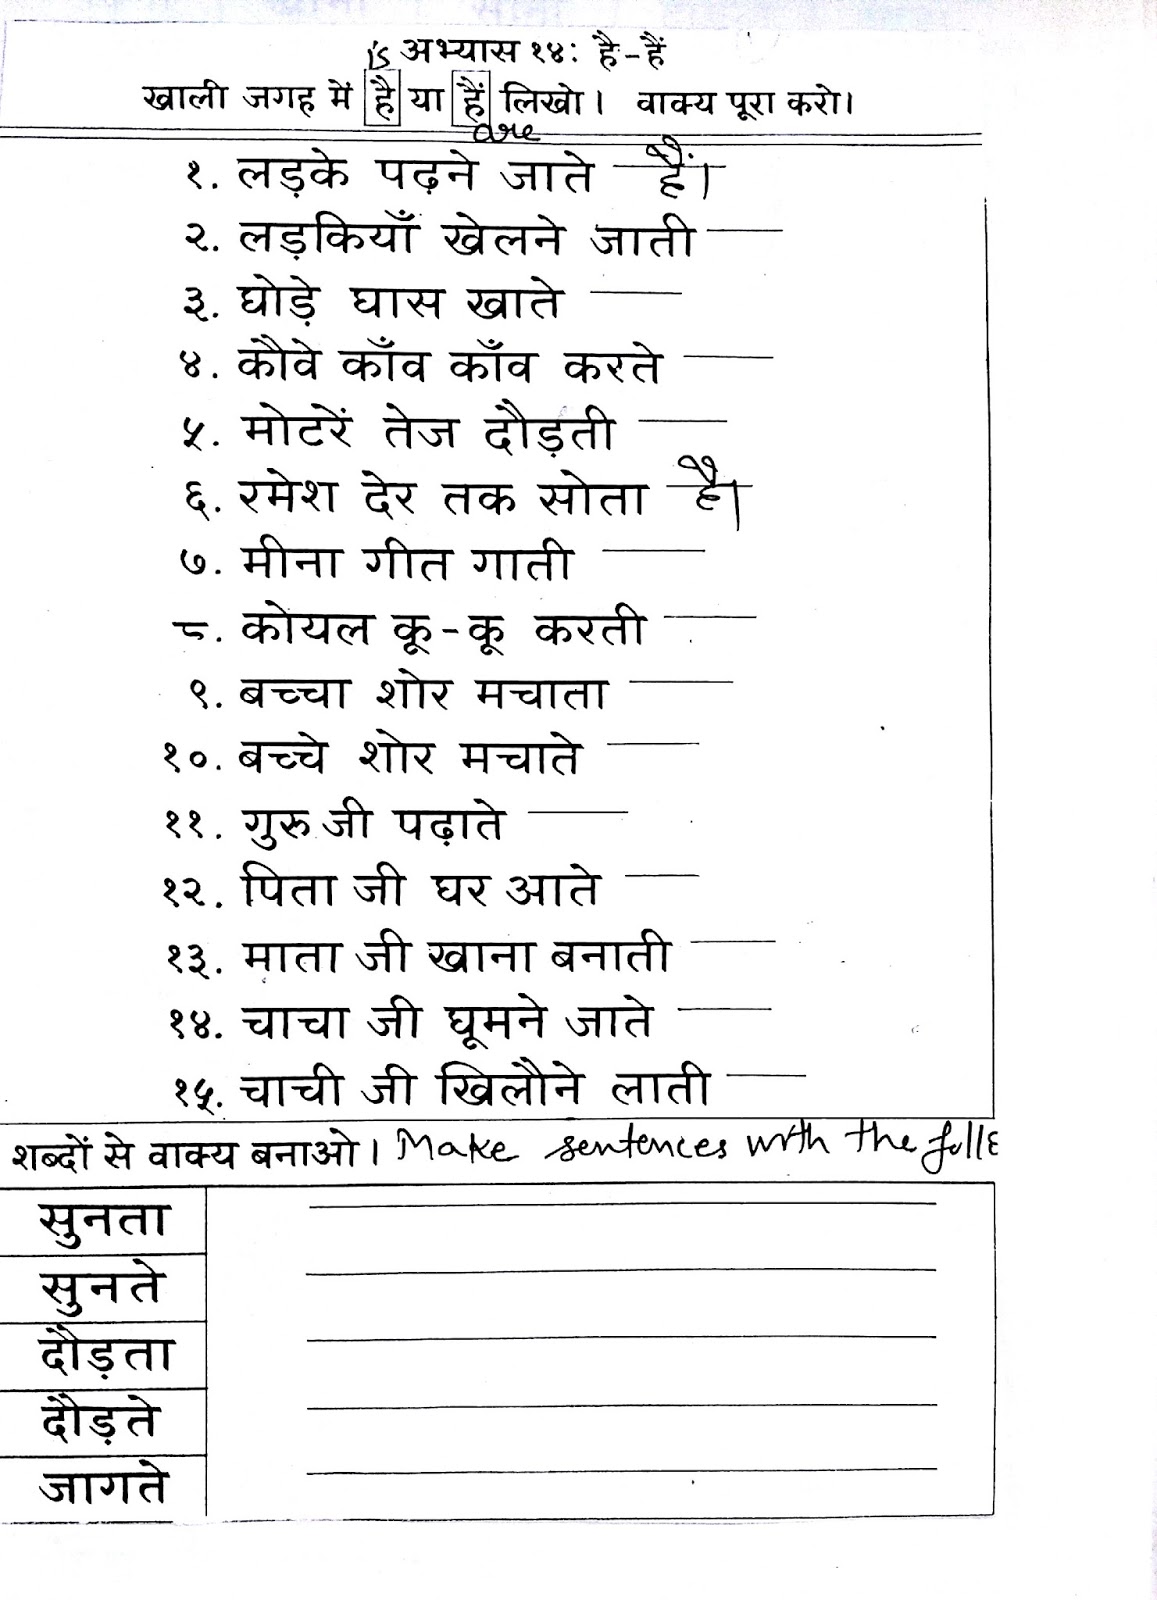 is अभ्यास १४: है-हैं
खाली जगह में है या हैं लिखो। वाक्य पूरा करो।
are
१. लड़के पढ़ने जाते हैं।
२. लड़कियाँ खेलने जाती
३. घोड़े घास खाते
४. कौवे काँव काँव करते
५. मोटरें तेज दौड़ती
६. रमेश देर तक सोता है।
७. मीना गीत गाती
८. कोयल कू-कू करती
९. बच्चा शोर मचाता
१०. बच्चे शोर मचाते
११. गुरु जी पढ़ाते
१२. पिता जी घर आते
१३. माता जी खाना बनाती
१४. चाचा जी घूमने जाते
१५. चाची जी खिलौने लाती
शब्दों से वाक्य बनाओ। Make sentences with the
सुनता
सुनते
दौड़ता
दौड़ते
जागते